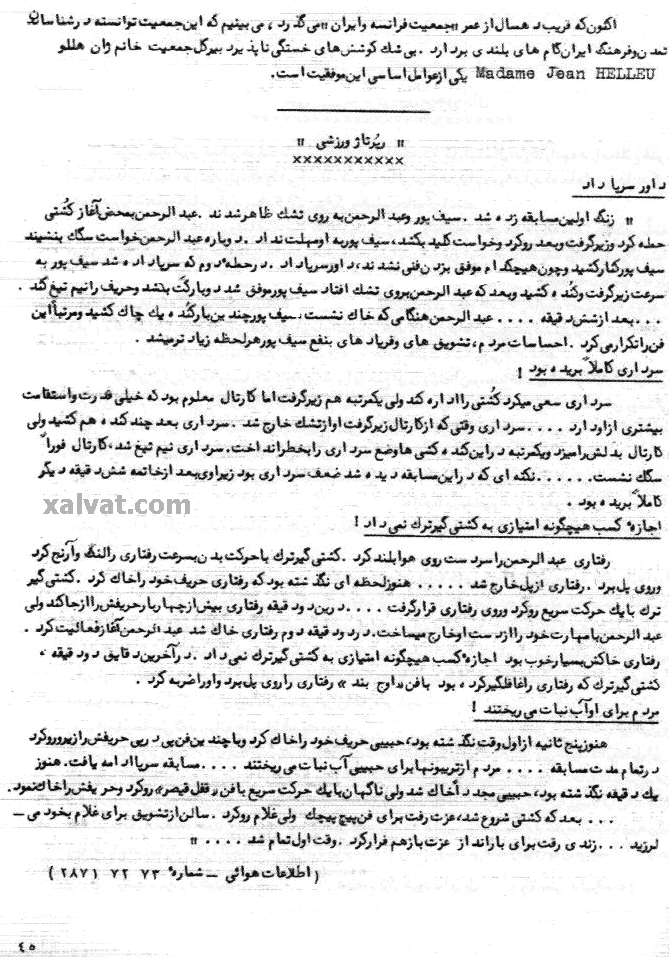 اکنون که قریب ده سال از عمر "جمعیت فرانسه و ایران" می گذرد، می بینیم که این جمعیت توانسته در شناساندن
تمدن و فرهنگ ایران گام های بلندی بردارد. بی شک کوشش های خستگی ناپذیر دبیرکل جمعیت خانم ژان هللو
Madame Jean HELLEU یکی از عوامل اساسی این موفقیت است.
" رپرتاژ ورزشی "
×××××××××××
داور سرپا داد
" زنگ اولین مسابقه زده شد. سیف پور و عبدالرحمن به روی تشک ظاهر شدند. عبدالرحمن بمحض آغاز کشتی
حمله کرد و زیر گرفت و بعد رو کرد و خواست کلید بکشد، سیف پور به او مهلت نداد. دوباره عبدالرحمن خواست سگک بنشیند
سیف پور کنار کشید و چون هیچکدام موفق بزدن فنی نشدند، داور سرپا داد. در حملهٔ دوم که سرپا داده شد سیف پور به
سرعت زیر گرفت و کنده کشید و بعد که عبدالرحمن بروی تشک افتاد سیف پور موفق شد دوبار کت بنشد و حریف را نیم تیغ کند.
... بعد از شش دقیقه .... عبدالرحمن هنگامی که خاک نشست، سیف پور چندین بار کنده یک چاک کشید و مرتباً این
فن را تکرار می کرد. احساسات مردم، تشویق های و فریاد های بنفع سیف پور هر لحظه زیادتر میشد.
سرداری کاملاً بریده بود !
سرداری سعی میکرد کشتی را اداره کند ولی یکمرتبه هم زیر گرفت اما کارتال معلوم بود که خیلی قدرت و استقامت
بیشتری از او دارد ..... سرداری وقتی که از کارتال زیر گرفت او از تشک خارج شد. سرداری بعد چند کنده هم کشید ولی
کارتال بدلش را میزد و یکمرتبه در این کنده کشی ها وضع سرداری را بخطر انداخت. سرداری نیم تیغ شد، کارتال فوراً
سگک نشست ...... نکته ای که در این مسابقه دیده شد ضعف سرداری بود زیرا وی بعد از خاتمه شش دقیقه دیگر
کاملاً بریده بود.
xalvat.com
اجازهٔ کسب هیچگونه امتیازی به کشتی گیر ترک نمی داد !
رفتاری عبدالرحمن را سردست روی هوا بلند کرد. کشتی گیر ترک با حرکت بدن بسرعت رفتاری را لنگ و آرنج کرد
و روی پل برد. رفتاری از پل خارج شد ..... هنوز لحظه ای نگذشته بود که رفتاری حریف خود را خاک کرد. کشتی گیر
ترک با یک حرکت سریع رو کرد و روی رفتاری قرار گرفت .... در این دو دقیقه رفتاری بیش از چهار بار حریفش را از جا کند ولی
عبدالرحمن با مهارت خود را از دست او خارج میساخت. در دو دقیقه دوم رفتاری خاک شد عبدالرحمن آغاز فعالیت کرد.
رفتاری خاکش بسیار خوب بود اجازهٔ کسب هیچگونه امتیازی به کشتی گیر ترک نمی داد. در آخرین دقایق دو دقیقه،
کشتی گیر ترک که رفتاری را غافلگیر کرده بود با فن « اوج بند » رفتاری را روی پل برد و او را ضربه کرد.
مردم برای او آب نبات می ریختند !
هنوز پنج ثانیه از اول وقت نگذشته بود، حبیبی حریف خود را خاک کرد و با چندین فن پی در پی حریفش را زیر و رو کرد
در تمام مدت مسابقه .... مردم از تریبونها برای حبیبی آب نبات می ریختند .... مسابقه سرپا ادامه یافت. هنوز
یک دقیقه نگذشته بود، حبیبی مجدداً خاک شد ولی ناگهان با یک حرکت سریع با فن « قفل قیصر » رو کرد و حریفش را خاک نمود.
... بعد که کشتی شروع شد، عزت رفت برای فن پیچ پیچک ولی غلام رو کرد. سالن از تشویق برای غلام بخود می ـ
لرزید ... زندی رفت برای بارانداز عزت باز هم فرار کرد. وقت اول تمام شد .... "
( اطلاعات هوائی ـ شمارهٔ ۷۳ ۷۲ ۲۸۷۱ )
٤٥